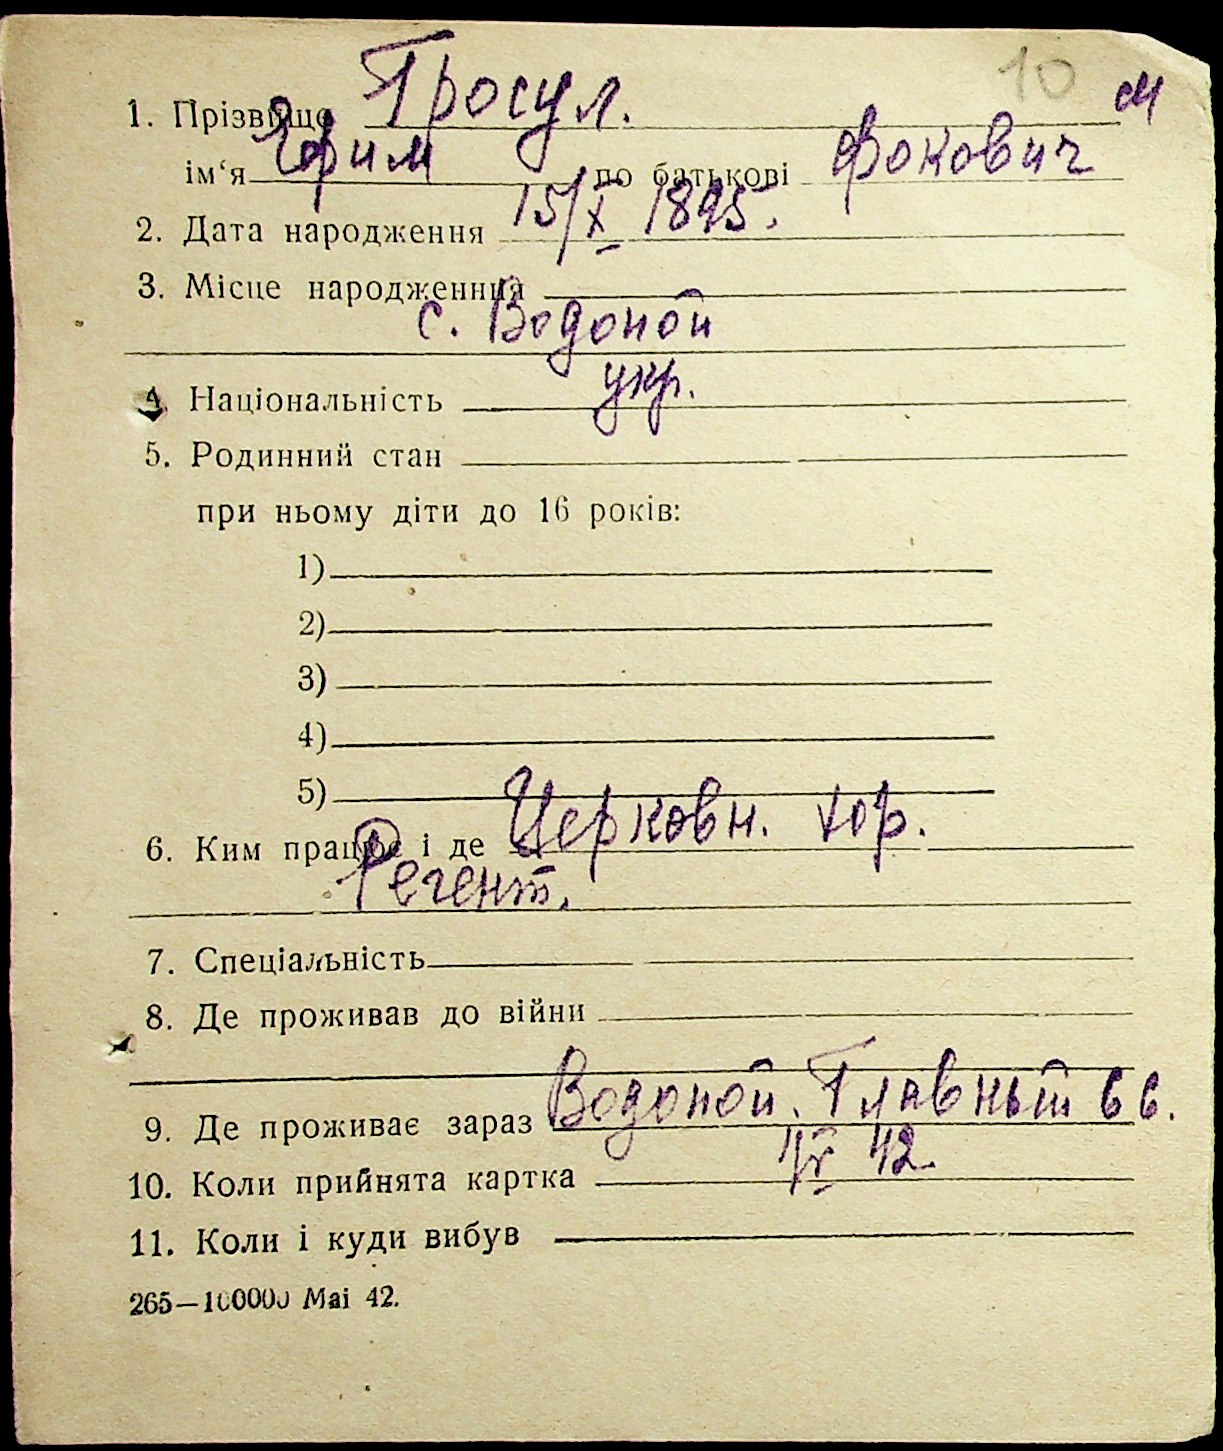 10 м
1. Прізвище Гросул.
ім‘я Ефим по батькові Фокович
2. Дата народження 15/X 1895.
3. Місце народженння
с. Водопой
4. Національність укр.
5. Родинний стан
при ньому діти до 16 років:
1)
2)
3)
4)
5)
6. Ким працює і де Церковн. хор.
Регент.
7. Спеціальність
8. Де проживав до війни
9. Де проживає зараз Водопой. Главный
10. Коли прийнята картка 42.
11. Коли і куди вибув
265—100000 Mai 42.